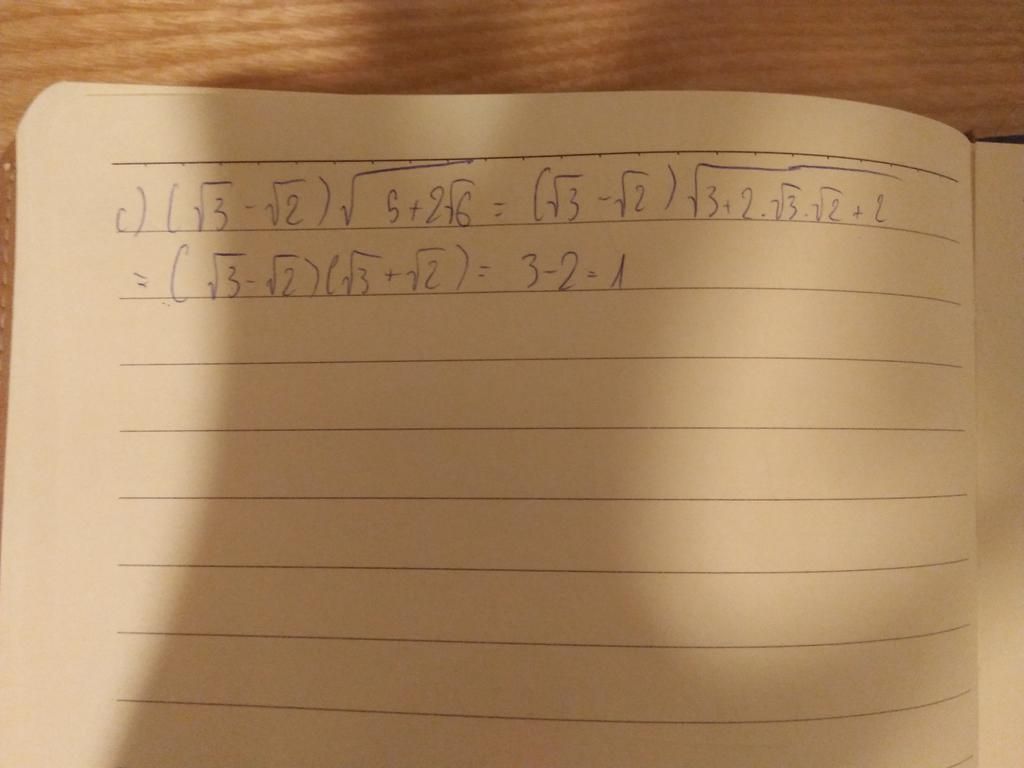 c) (√3 - √2)√(5+2√6) = (√3 - √2)√(3+2.√3.√2+2)
= (√3-√2)(√3+√2) = 3-2=1